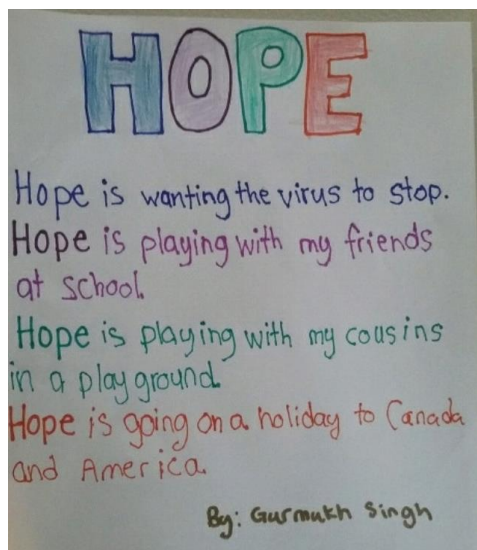 HOPE
Hope is wanting the virus to stop.
Hope is playing with my friends
at school.
Hope is playing with my cousins
in a playground.
Hope is going on a holiday to Canada
and America.
By: Gurmukh Singh